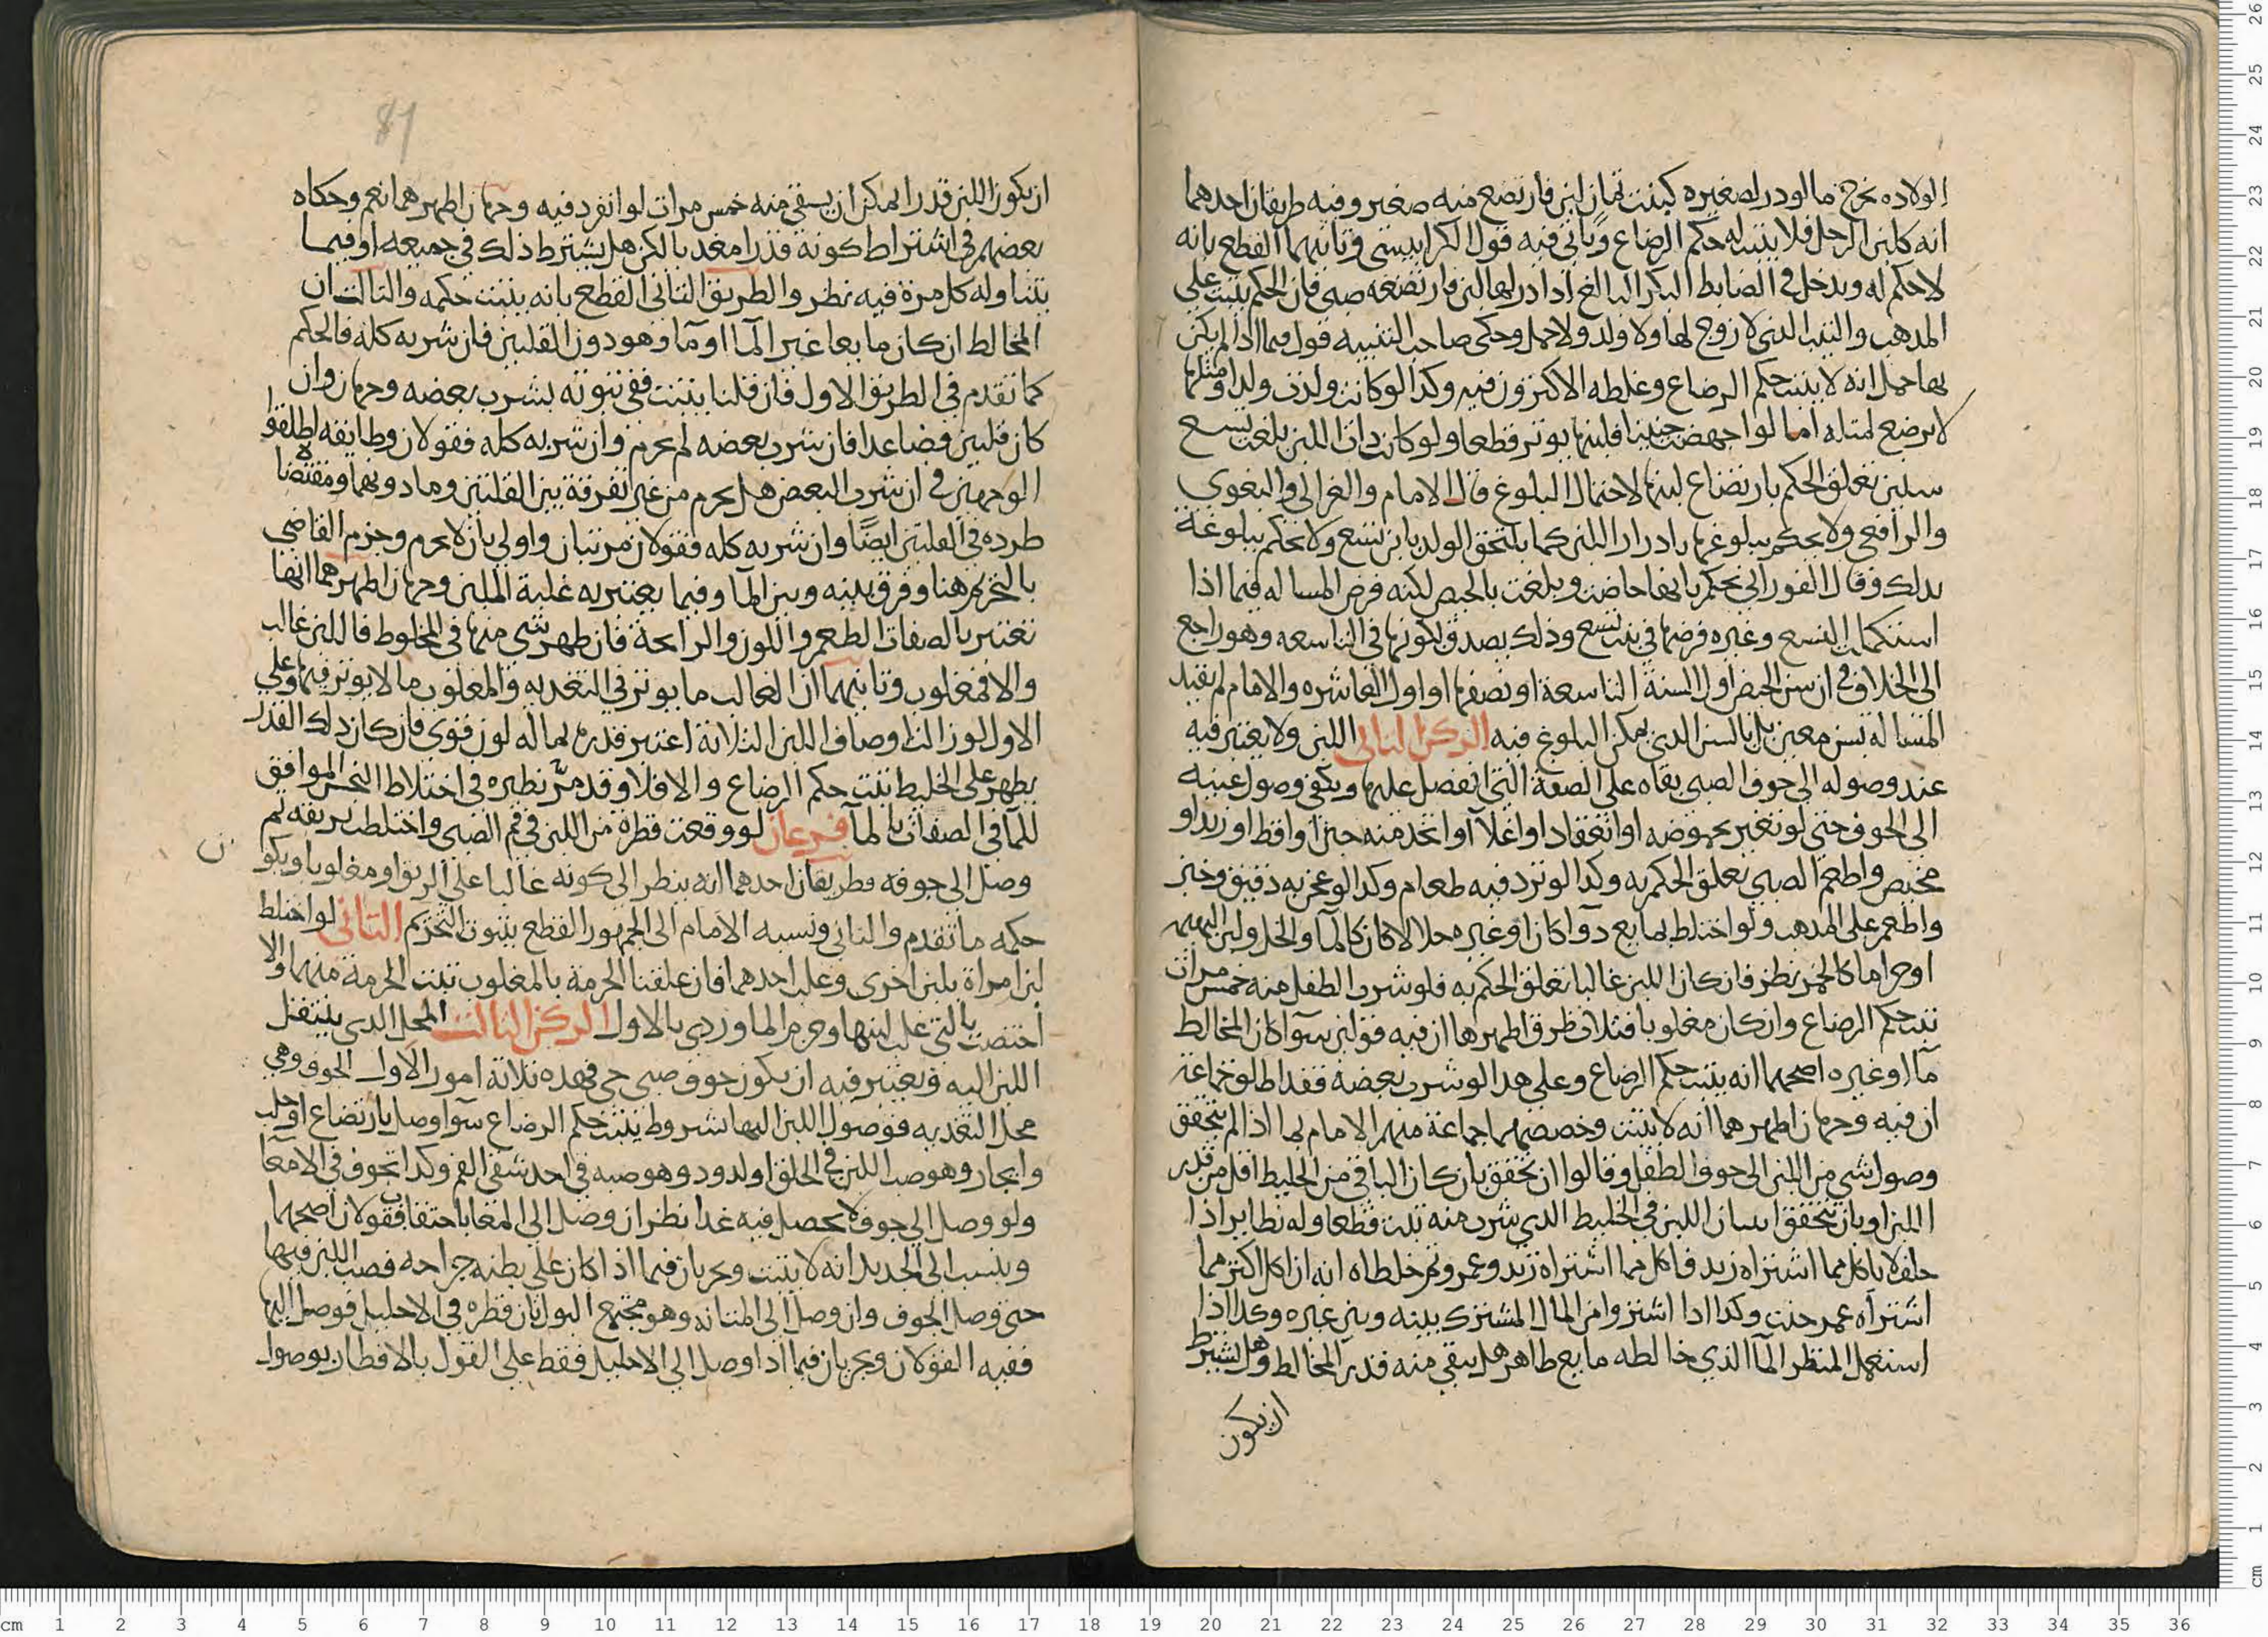 الولاده يخرج ما لو در لصغيره كبنت ثمان لبن فارتضع منه صغير وفيه طريقان احدهما
انه كلبن الرجل فلا يثبت له حكم الرضاع وياتي فيه قول الكرابيسي وثانيهما القطع بانه
لا حكم له ويدخل في الضابط البكر البالغ اذا در لها لبن فارتضعه صبي فان الحكم يثبت علي
المذهب والثيب الذي لا زوج لها ولا ولد ولا حمل وحكى صاحب التنبيه قول فيما اذا لم يكن
بها حمل انه لا يثبت حكم الرضاع وغلطه الاكثرون فيه وكذا لو كانت ولدت ولدا ومثلها
لا يرضع لمثله اما لو اجهضت جنينا فلبنها يوثر قطعا ولو كانت ذات اللبن بلغت تسع
سنين تعلق الحكم بارتضاع لبنها لاحتمال البلوغ قال الامام والغزالي والبغوي
والرافعي ولا يحكم ببلوغها بادرار اللبن كما يلتحق الولد بابن تسع ولا يحكم ببلوغه
بذلك وقال الفوراني نحكم بانها حاضت وبلغت بالحيض لكنه فرض المساله فيما اذا
استكملت التسع وغيره فرضها في بنت تسع وذلك يصدق بكونها في التاسعه وهو راجع
الى الخلاف في ان سن الحيض اول السنة التاسعة او نصفها او اول العاشره والامام لم يقيد
المساله بسن معين بل بالسن الذي يمكن البلوغ فيه الركن الثاني اللبن ولا يعتبر فيه
عند وصوله الى جوف الصبي بقاه على الصفة التي انفصل عليها ويكفي وصول عينه
الى الجوف حتى لو تغير بحموضه او انعقاد او اغلآ او اتخذ منه جبن او اقط او زبد او
مخيض واطعم الصبي تعلق الحكم به وكذا لو ثرد فيه طعام وكذا لو عجن به دقيق وخبز
واطعم على المذهب ولو اختلط بمايع دوآ كان او غيره حلالا كان كالمآ والخل ولبن البهيمه
او حراما كالخمر نظر فان كان اللبن غالبا تعلق الحكم به فلو شرب الطفل منه خمس مرات
ثبت حكم الرضاع وان كان مغلوبا فثلاث طرق اظهرها ان فيه قولين سوآ كان المخالط
مآ او غيره اصحهما انه يثبت حكم الرضاع وعلى هذا لو شرب بعضه فقد اطلق جماعة
ان فيه وجهان اظهرهما انه لا يثبت وخصصهما جماعة منهم الامام بما اذا لم يتحقق
وصول شي من اللبن الى جوف الطفل وقالوا ان تحقق بان كان الباقي من الخليط اقل من قدر
اللبن او بان تحقق اتيان اللبن في الخليط الذي شرب منه ثبت قطعا وله نظاير اذا
حلف لا ياكل مما اشتراه زيد فاكل مما اشتراه زيد وعمرو ثم خلطاه انه ان اكل اكثر مما
اشتراه عمر حنث وكذا اذا اشتروا من المال المشترك بينه وبين غيره وكذا اذا
استعمل المتطهر المآ الذي خالطه مايع طاهر هل يبقي منه قدر المخالط وهل يشترط
ان يكون
81
ان يكون اللبن قدرا يمكن ان يسقى منه خمس مرات لو انفرد فيه وجهان اظهرهما نعم وحكاه
بعضهم في اشتراط كونه قدرا مغديا لكن هل يشترط ذلك في جميعه او فيما
يتناوله كل مرة فيه نظر والطريق الثاني القطع بانه يثبت حكمه والثالث ان
المخالط ان كان مايعا غير المآ او مآ وهو دون القلتين فان شربه كله فالحكم
كما تقدم في الطريق الاول فان قلنا يثبت ففي ثبوته بشرب بعضه وجهان وان
كان قلتين فصاعدا فان شرب بعضه لم يحرم وان شربه كله فقولان وطايفه اطلقوا
الوجهين في ان شرب البعض هل يحرم من غير تفرقة بين القلتين وما دونهما ومقتضاه
طرده في القلتين ايضًا وان شربه كله فقولان مرتبان واولي بان لا يحرم وجزم القاضي
بالتحريم هنا وفرق بينه وبين المآ وفيما يعتبر به غلبة اللبن وجهان اظهرهما انها
تعتبر بالصفات الطعم واللون والرايحة فان ظهر شي منها في المخلوط فاللبن غالب
والا فمغلوب وثانيهما ان الغالب ما يوثر في التغديه والمغلوب ما لا يوثر فيها وعلي
الاول لو زالت اوصاف اللبن الثلاثة اعتبر قدره بما له لون قوي فان كان ذلك القدر
يظهر على الخليط ثبت حكم الرضاع والا فلا وقد مرّ نظيره في اختلاط النجس الموافق
للمآ في الصفات بالمآ فرعان لو وقعت قطرة من اللبن في فم الصبي واختلطت بريقه ثم
وصل الى جوفه فطريقان احدهما انه ينظر الى كونه غالبا علي الريق او مغلوبا ويكو
ن
حكمه ما تقدم والثاني ونسبه الامام الى الجمهور القطع بثبوت التحريم الثاني لو اختلط
لبن امراة بلبن اخرى وغلب احدهما فان علقنا الحرمة بالمغلوب ثبتت الحرمة منهما والا
اختصت بالتي غلب لبنها وجزم الماوردي بالاول الركن الثالث المحل الذي ينتقل
اللبن اليه ويعتبر فيه ان يكون جوف صبي حي فهذه ثلاثة امور الاول الجوف وهي
محل التغديه فوصول اللبن اليها بشروط يثبت حكم الرضاع سوآ وصل بارتضاع او حلب
وايجار وهو صب اللبن في الحلق او لدود وهو صبه في احد شقي الفم وكذا تجوف في الامعآ
ولو وصل الى جوف لا يحصل فيه غدا نظر ان وصل الى المعا باحتقان فقولان اصحهما
وينسب الى الجديد انه لا يثبت ويجريان فيما اذا كان على بطنه جراحه فصب اللبن فيها
حتى وصل الجوف وان وصل الى المثانه وهو مجتمع البول بان قطره في الاحليل فوصل اليها
ففيه القولان ويجريان فيما اذا وصل الى الاحليل فقط على القول بالافطار بوصول